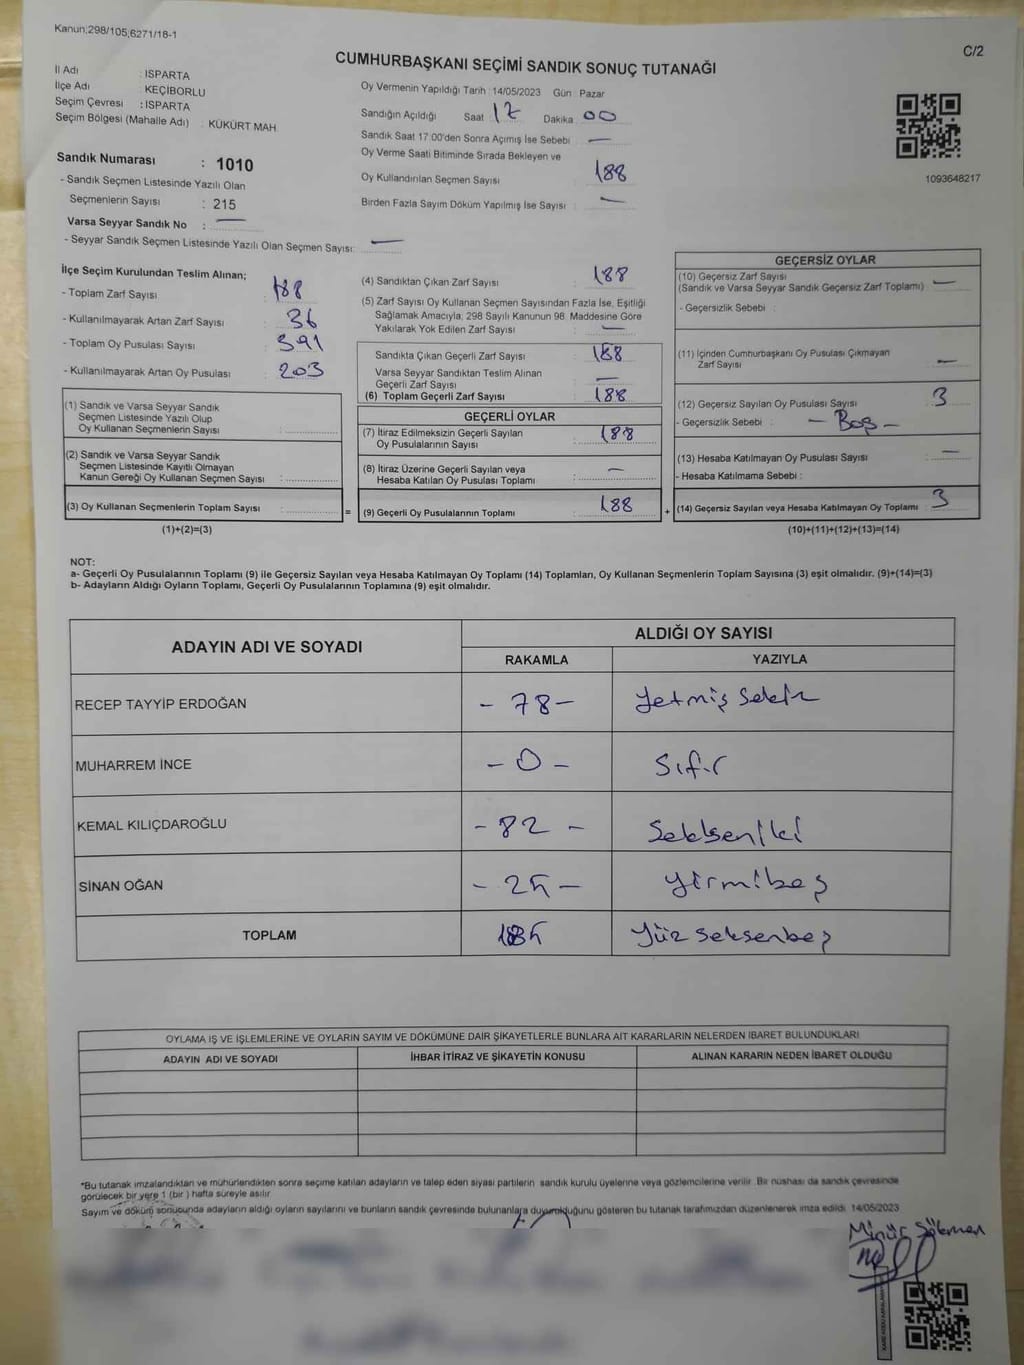 Kanun;298/105;6271/18-1
C/2
CUMHURBAŞKANI SEÇİMİ SANDIK SONUÇ TUTANAĞI
İl Adı : ISPARTA
İlçe Adı : KEÇİBORLU
Seçim Çevresi : ISPARTA
Seçim Bölgesi (Mahalle Adı) : KÜKÜRT MAH.
Sandık Numarası : 1010
- Sandık Seçmen Listesinde Yazılı Olan
Seçmenlerin Sayısı : 215
Varsa Seyyar Sandık No : —
- Seyyar Sandık Seçmen Listesinde Yazılı Olan Seçmen Sayısı: —
Oy Vermenin Yapıldığı Tarih : 14/05/2023 Gün : Pazar
Sandığın Açıldığı Saat 17 Dakika 00
Sandık Saat 17:00'den Sonra Açımış İse Sebebi : —
Oy Verme Saati Bitiminde Sırada Bekleyen ve
Oy Kullandırılan Seçmen Sayısı : 188
Birden Fazla Sayım Döküm Yapılmış İse Sayısı : —
1093648217
İlçe Seçim Kurulundan Teslim Alınan;
- Toplam Zarf Sayısı : 188
- Kullanılmayarak Artan Zarf Sayısı : 36
- Toplam Oy Pusulası Sayısı : 391
- Kullanılmayarak Artan Oy Pusulası : 203
(1) Sandık ve Varsa Seyyar Sandık
Seçmen Listesinde Yazılı Olup
Oy Kullanan Seçmenlerin Sayısı :
(2) Sandık ve Varsa Seyyar Sandık
Seçmen Listesinde Kayıtlı Olmayan
Kanun Gereği Oy Kullanan Seçmen Sayısı :
(3) Oy Kullanan Seçmenlerin Toplam Sayısı :
(1)+(2)=(3)
=
(4) Sandıktan Çıkan Zarf Sayısı : 188
(5) Zarf Sayısı Oy Kullanan Seçmen Sayısından Fazla İse, Eşitliği
Sağlamak Amacıyla; 298 Sayılı Kanunun 98. Maddesine Göre
Yakılarak Yok Edilen Zarf Sayısı : —
Sandıkta Çıkan Geçerli Zarf Sayısı : 188
Varsa Seyyar Sandıktan Teslim Alınan
Geçerli Zarf Sayısı : —
(6) Toplam Geçerli Zarf Sayısı : 188
GEÇERLİ OYLAR
(7) İtiraz Edilmeksizin Geçerli Sayılan
Oy Pusulalarının Sayısı : 188
(8) İtiraz Üzerine Geçerli Sayılan veya
Hesaba Katılan Oy Pusulası Toplamı : —
(9) Geçerli Oy Pusulalarının Toplamı : 188
+
GEÇERSİZ OYLAR
(10) Geçersiz Zarf Sayısı
(Sandık ve Varsa Seyyar Sandık Geçersiz Zarf Toplamı) : —
- Geçersizlik Sebebi :
(11) İçinden Cumhurbaşkanı Oy Pusulası Çıkmayan
Zarf Sayısı : —
(12) Geçersiz Sayılan Oy Pusulası Sayısı : 3
- Geçersizlik Sebebi : - Boş -
(13) Hesaba Katılmayan Oy Pusulası Sayısı : —
- Hesaba Katılmama Sebebi :
(14) Geçersiz Sayılan veya Hesaba Katılmayan Oy Toplamı : 3
(10)+(11)+(12)+(13)=(14)
NOT:
a- Geçerli Oy Pusulalarının Toplamı (9) ile Geçersiz Sayılan veya Hesaba Katılmayan Oy Toplamı (14) Toplamları, Oy Kullanan Seçmenlerin Toplam Sayısına (3) eşit olmalıdır. (9)+(14)=(3)
b- Adayların Aldığı Oyların Toplamı, Geçerli Oy Pusulalarının Toplamına (9) eşit olmalıdır.
ADAYIN ADI VE SOYADI ALDIĞI OY SAYISI
RAKAMLA YAZIYLA
RECEP TAYYİP ERDOĞAN - 78 - Yetmiş Sekiz
MUHARREM İNCE - 0 - Sıfır
KEMAL KILIÇDAROĞLU - 82 - Seksen iki
SİNAN OĞAN - 25 - Yirmibeş
TOPLAM 185 Yüz Seksenbeş
OYLAMA İŞ VE İŞLEMLERİNE VE OYLARIN SAYIM VE DÖKÜMÜNE DAİR ŞİKAYETLERLE BUNLARA AİT KARARLARIN NELERDEN İBARET BULUNDUKLARI
ADAYIN ADI VE SOYADI İHBAR İTİRAZ VE ŞİKAYETİN KONUSU ALINAN KARARIN NEDEN İBARET OLDUĞU
*Bu tutanak imzalandıktan ve mühürlendikten sonra seçime katılan adayların ve talep eden siyasi partilerin sandık kurulu üyelerine veya gözlemcilerine verilir. Bir nüshası da sandık çevresinde
görülecek bir yere 1 (bir ) hafta süreyle asılır.
Sayım ve döküm sonucunda adayların aldığı oyların sayılarını ve bunların sandık çevresinde bulunanlara duyurulduğunu gösteren bu tutanak tarafımızdan düzenlenerek imza edildi. 14/05/2023